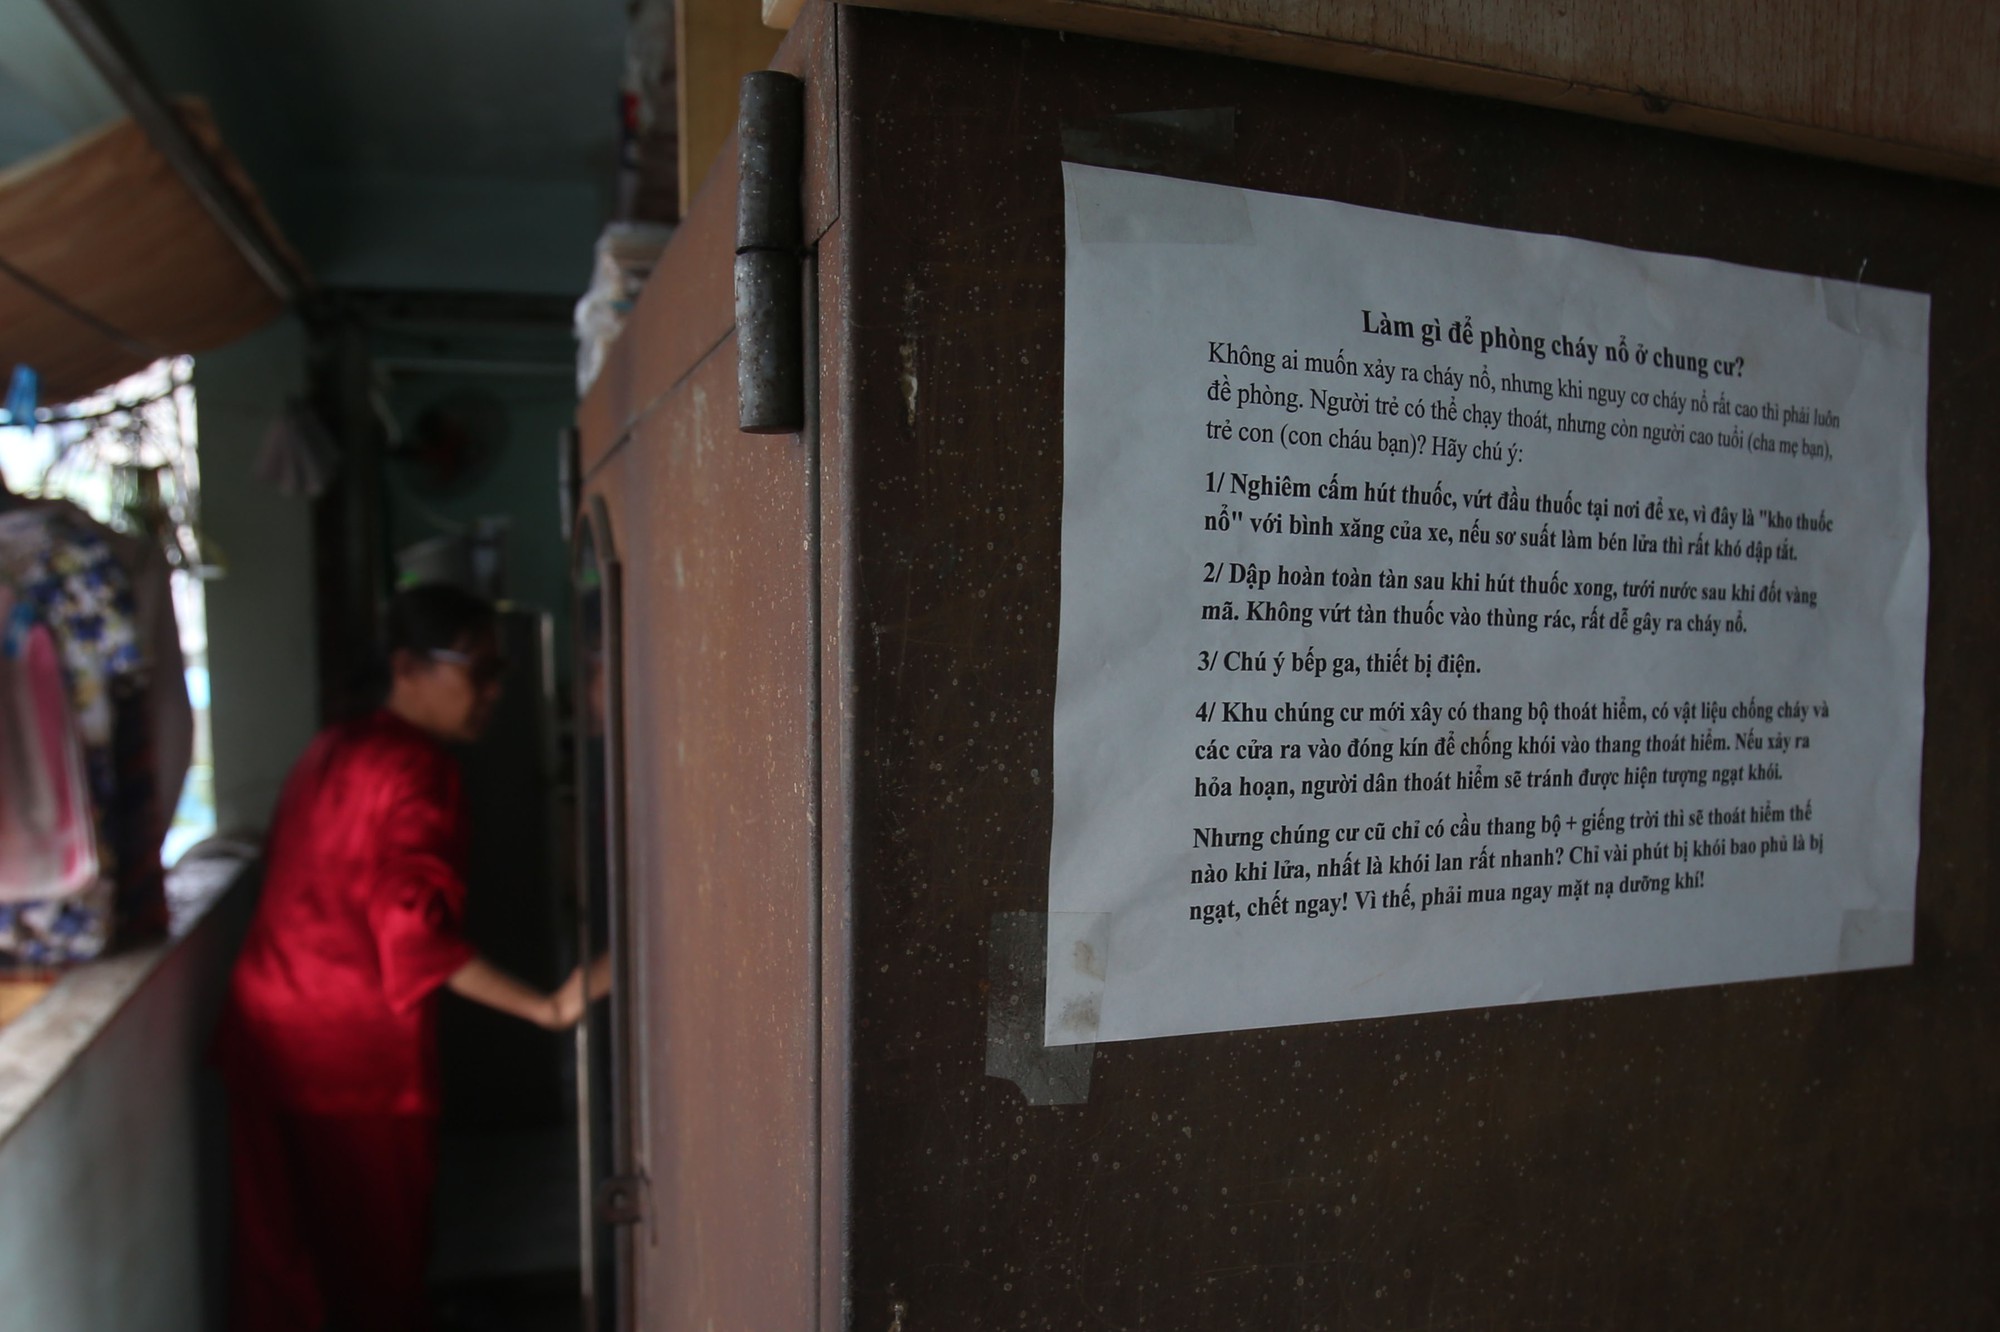 Làm gì để phòng cháy nổ ở chung cư?
Không ai muốn xảy ra cháy nổ, nhưng khi nguy cơ cháy nổ rất cao thì phải luôn
đề phòng. Người trẻ có thể chạy thoát, nhưng còn người cao tuổi (cha mẹ bạn),
trẻ con (con cháu bạn)? Hãy chú ý:
1/ Nghiêm cấm hút thuốc, vứt đầu thuốc tại nơi để xe, vì đây là "kho thuốc
nổ" với bình xăng của xe, nếu sơ suất làm bén lửa thì rất khó dập tắt.
2/ Dập hoàn toàn tàn sau khi hút thuốc xong, tưới nước sau khi đốt vàng
mã. Không vứt tàn thuốc vào thùng rác, rất dễ gây ra cháy nổ.
3/ Chú ý bếp ga, thiết bị điện.
4/ Khu chúng cư mới xây có thang bộ thoát hiểm, có vật liệu chống cháy và
các cửa ra vào đóng kín để chống khói vào thang thoát hiểm. Nếu xảy ra
hỏa hoạn, người dân thoát hiểm sẽ tránh được hiện tượng ngạt khói.
Nhưng chúng cư cũ chỉ có cầu thang bộ + giếng trời thì sẽ thoát hiểm thế
nào khi lửa, nhất là khói lan rất nhanh? Chỉ vài phút bị khói bao phủ là bị
ngạt, chết ngay! Vì thế, phải mua ngay mặt nạ dưỡng khí!